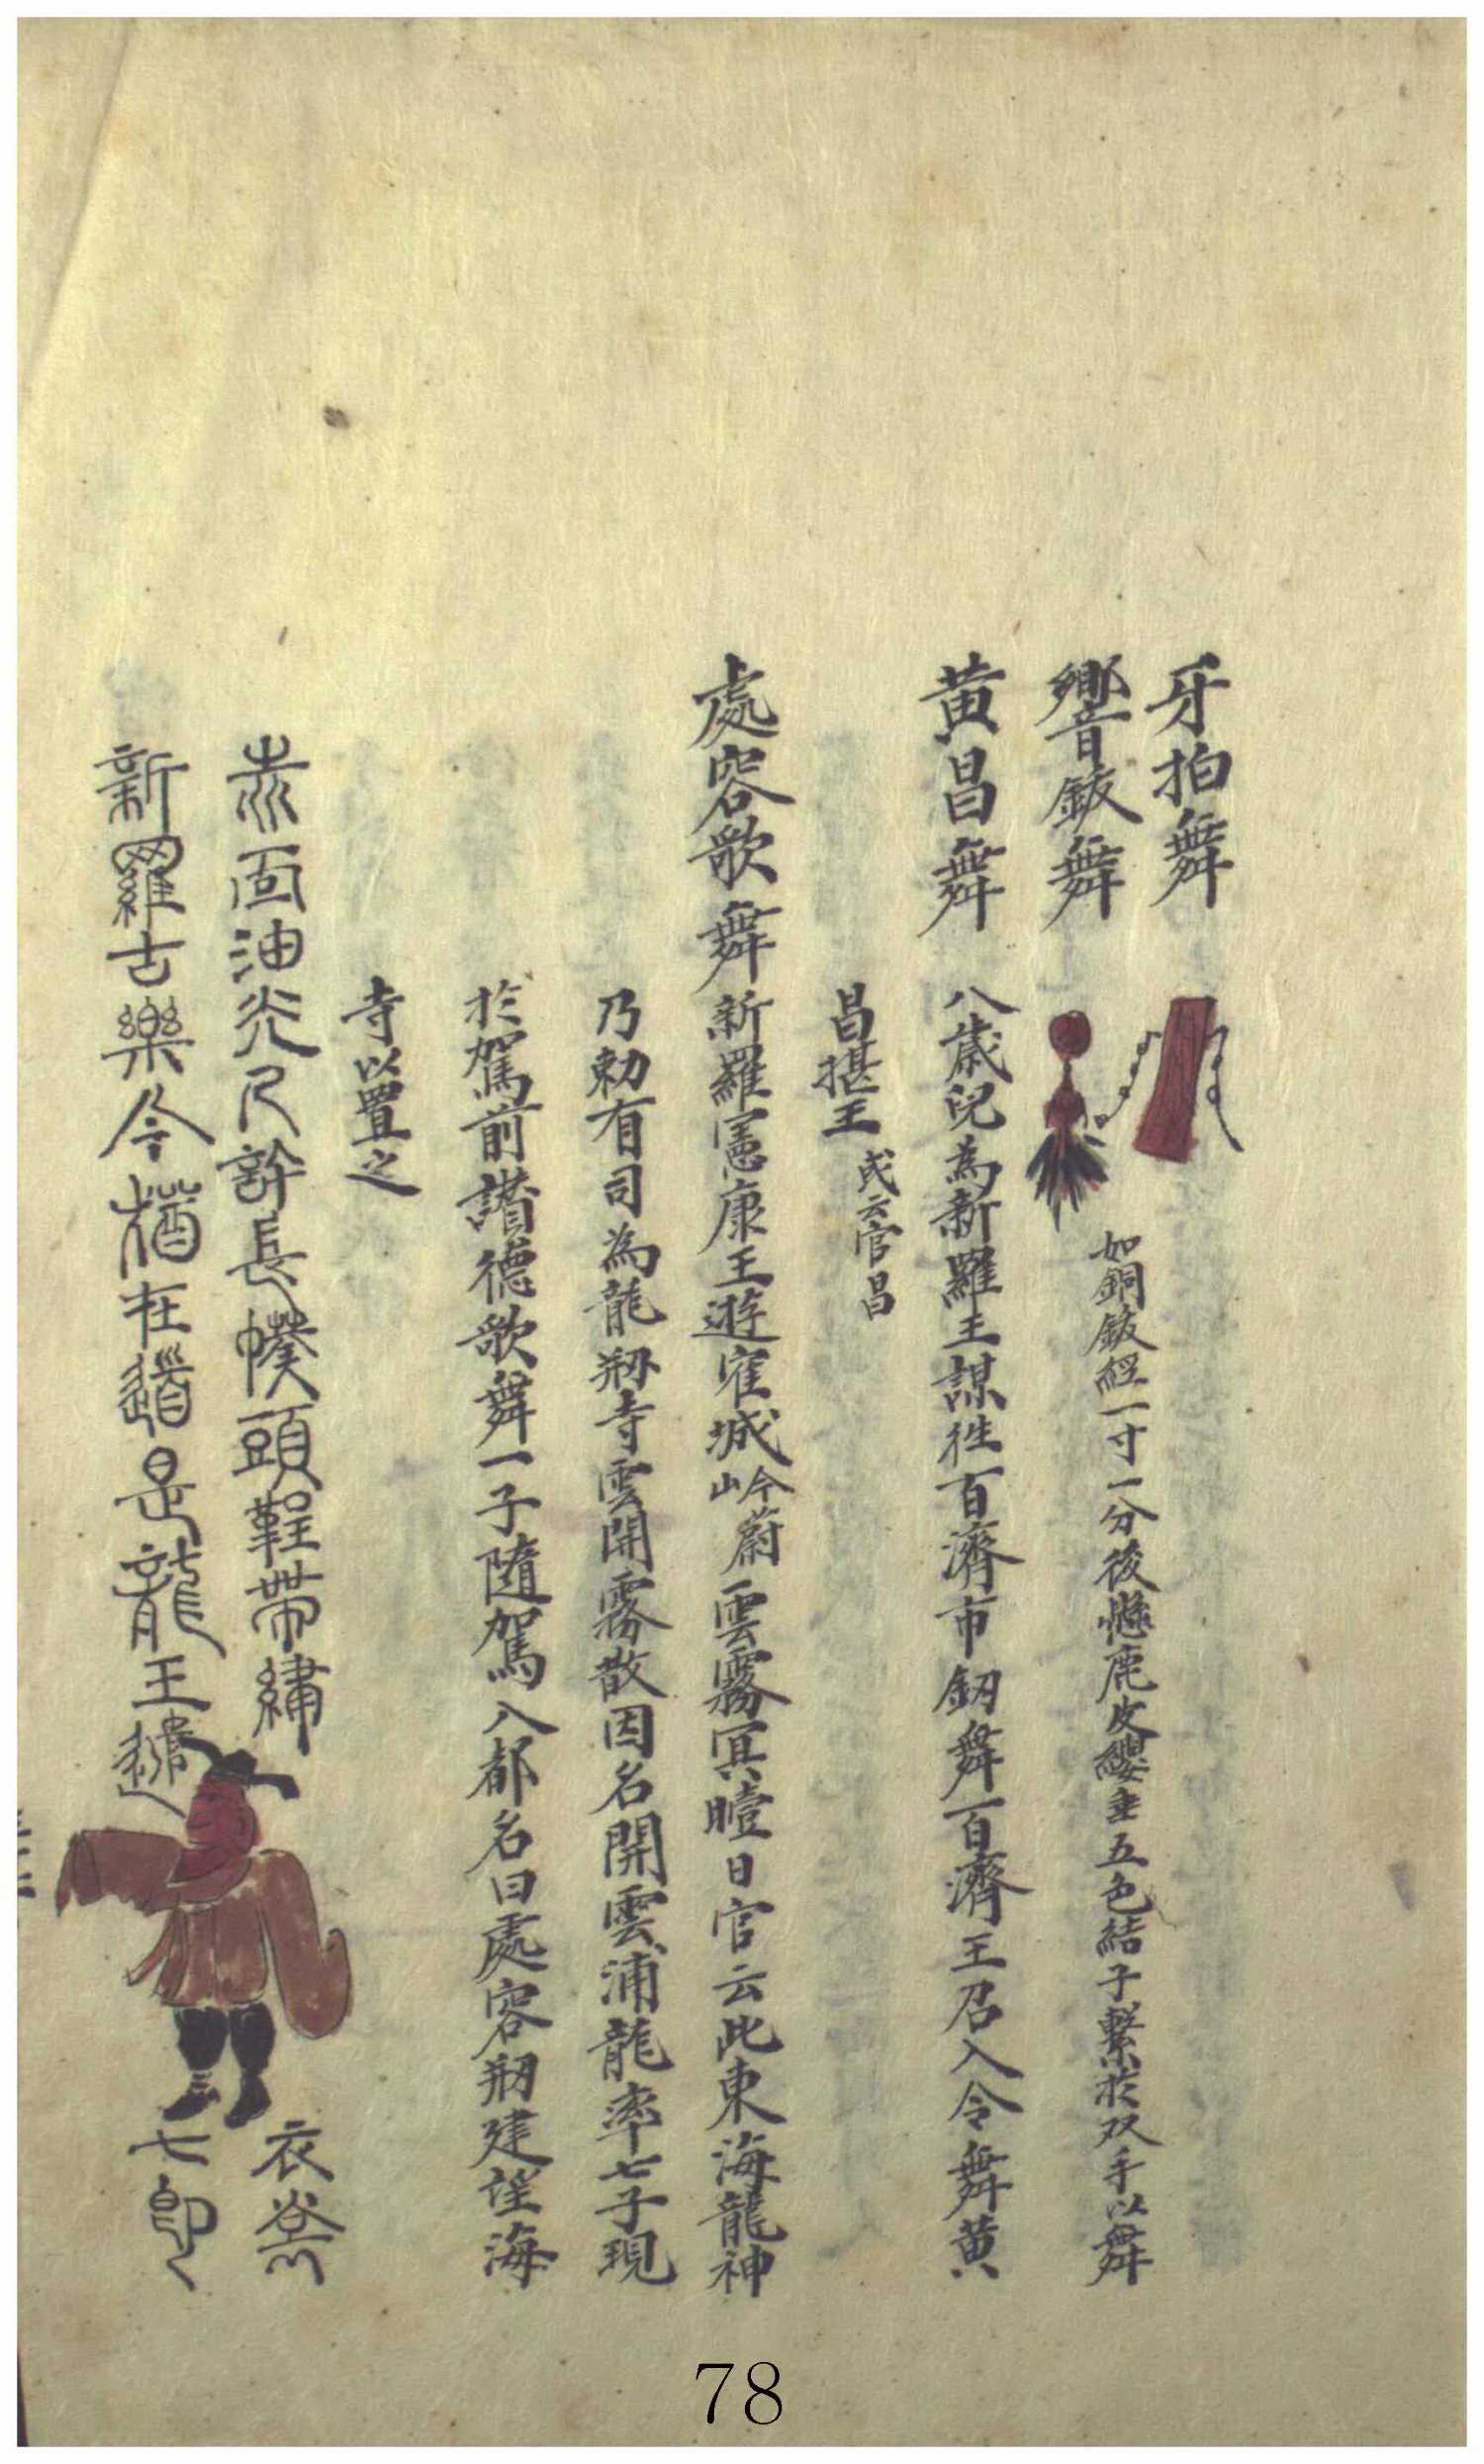 牙拍舞
響鈸舞
如銅鈸經一寸一分後懸鹿皮纓垂五色結子繫於双手以舞
黄昌舞 八歲兒為新羅王謀徃百濟市釰舞百濟王召入令舞黄
昌揕王 或云官昌
處容歌舞 新羅憲康王遊寉城岭蔚雲霧冥曀日官云此東海龍神
乃勅有司為龍刱寺雲開霧散因名開雲浦龍率七子現
於駕前讃德歌舞一子隨駕入都名曰處容刱建望海
寺以置之
長幞頭鞓帶繡衣
新羅古樂今猶在道是龍王 七郎
78